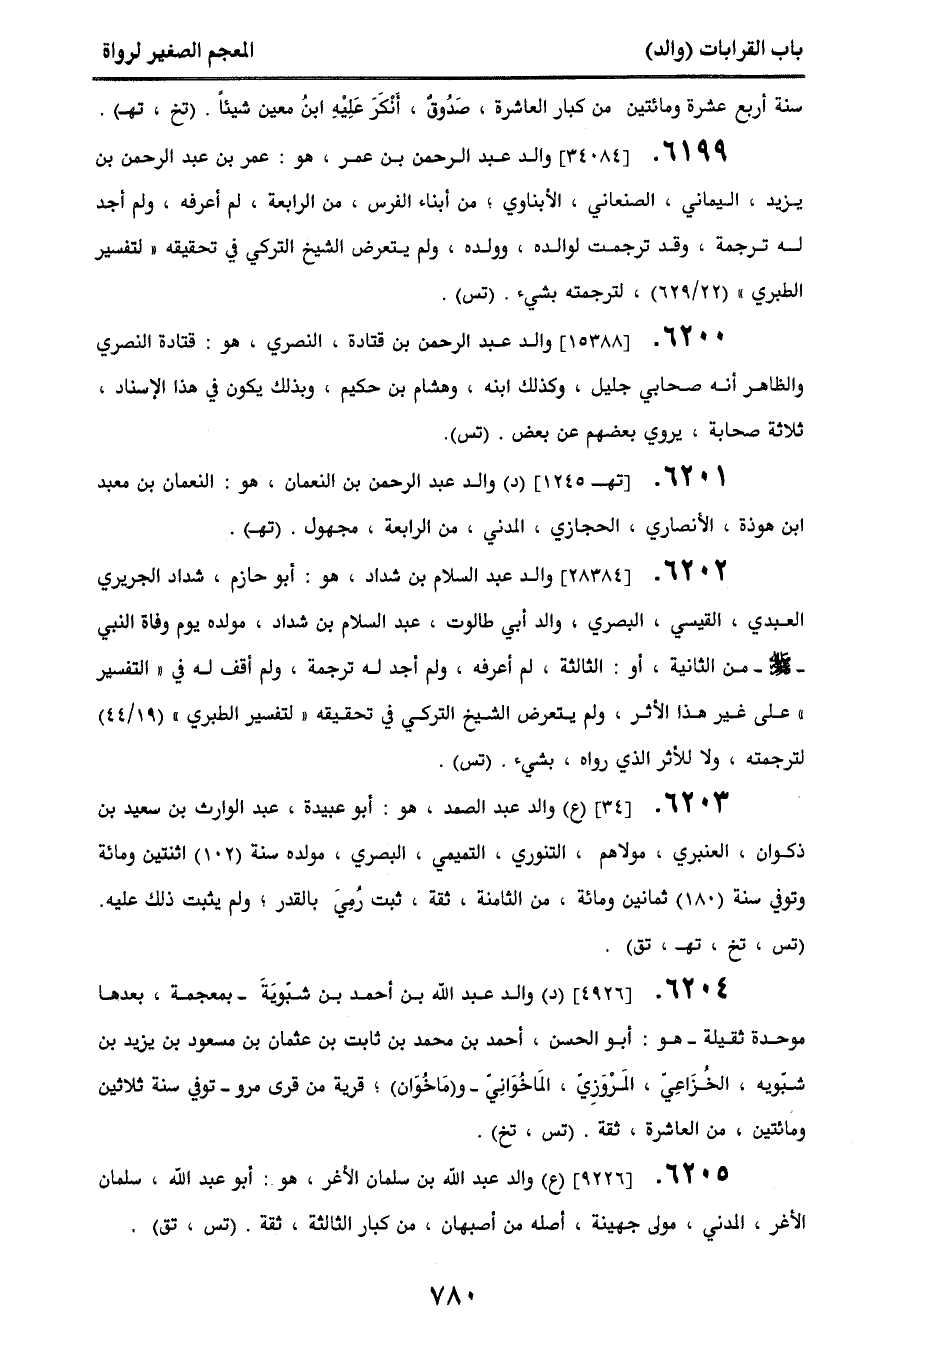 باب القرابات (والد)
المعجم الصغير لرواة
سنة أربع عشرة ومائتين من كبار العاشرة ، صَدُوقٌ ، أَنْكَرَ عَلِيْهِ ابنُ معين شيئاً . (تخ ، تهـ) .
٦١٩٩. [٣٤٠٨٤] والد عبد الرحمن بن عمر ، هو : عمر بن عبد الرحمن بن
يزيد ، اليماني ، الصنعاني ، الأبناوي ؛ من أبناء الفرس ، من الرابعة ، لم أعرفه ، ولم أجد
له ترجمة ، وقد ترجمت لوالده ، وولده ، ولم يتعرض الشيخ التركي في تحقيقه « لتفسير
الطبري » (٦٢٩/٢٢) ، لترجمته بشيء . (تس) .
٦٢٠٠. [١٥٣٨٨] والد عبد الرحمن بن قتادة ، النصري ، هو : قتادة النصري
والظاهر أنه صحابي جليل ، وكذلك ابنه ، وهشام بن حكيم ، وبذلك يكون في هذا الإسناد ،
ثلاثة صحابة ، يروي بعضهم عن بعض . (تس).
٦٢٠١. [تهـ ١٢٤٥] (د) والد عبد الرحمن بن النعمان ، هو : النعمان بن معبد
ابن هوذة ، الأنصاري ، الحجازي ، المدني ، من الرابعة ، مجهول . (تهـ) .
٦٢٠٢. [٢٨٣٨٤] والد عبد السلام بن شداد ، هو : أبو حازم ، شداد الجريري
العبدي ، القيسي ، البصري ، والد أبي طالوت ، عبد السلام بن شداد ، مولده يوم وفاة النبي
ـ ﷺ ـ من الثانية ، أو : الثالثة ، لم أعرفه ، ولم أجد له ترجمة ، ولم أقف له في « التفسير
» على غير هذا الأثر ، ولم يتعرض الشيخ التركي في تحقيقه « لتفسير الطبري » (٤٤/١٩)
لترجمته ، ولا للأثر الذي رواه ، بشيء . (تس) .
٦٢٠٣. [٣٤] (ع) والد عبد الصمد ، هو : أبو عبيدة ، عبد الوارث بن سعيد بن
ذكوان ، العنبري ، مولاهم ، التنوري ، التميمي ، البصري ، مولده سنة (١٠٢) اثنتين ومائة
وتوفي سنة (١٨٠) ثمانين ومائة ، من الثامنة ، ثقة ، ثبت رُمِيَ بالقدر ؛ ولم يثبت ذلك عليه.
(تس ، تخ ، تهـ ، تق) .
٦٢٠٤. [٤٩٢٦] (د) والد عبد الله بن أحمد بن شبّويَةَ ـ بمعجمة ، بعدها
موحدة ثقيلة ـ هو : أبو الحسن ، أحمد بن محمد بن ثابت بن عثمان بن مسعود بن يزيد بن
شبّويه ، الخُزَاعِيّ ، المَرْوَزِيّ ، المَاخُوَانِيّ ـ و(مَاخُوَان) ؛ قرية من قرى مرو ـ توفي سنة ثلاثين
ومائتين ، من العاشرة ، ثقة . (تس ، تخ) .
٦٢٠٥. [٩٢٢٦] (ع) والد عبد الله بن سلمان الأغر ، هو : أبو عبد الله ، سلمان
الأغر ، المدني ، مولى جهينة ، أصله من أصبهان ، من كبار الثالثة ، ثقة . (تس ، تق) .
٧٨٠